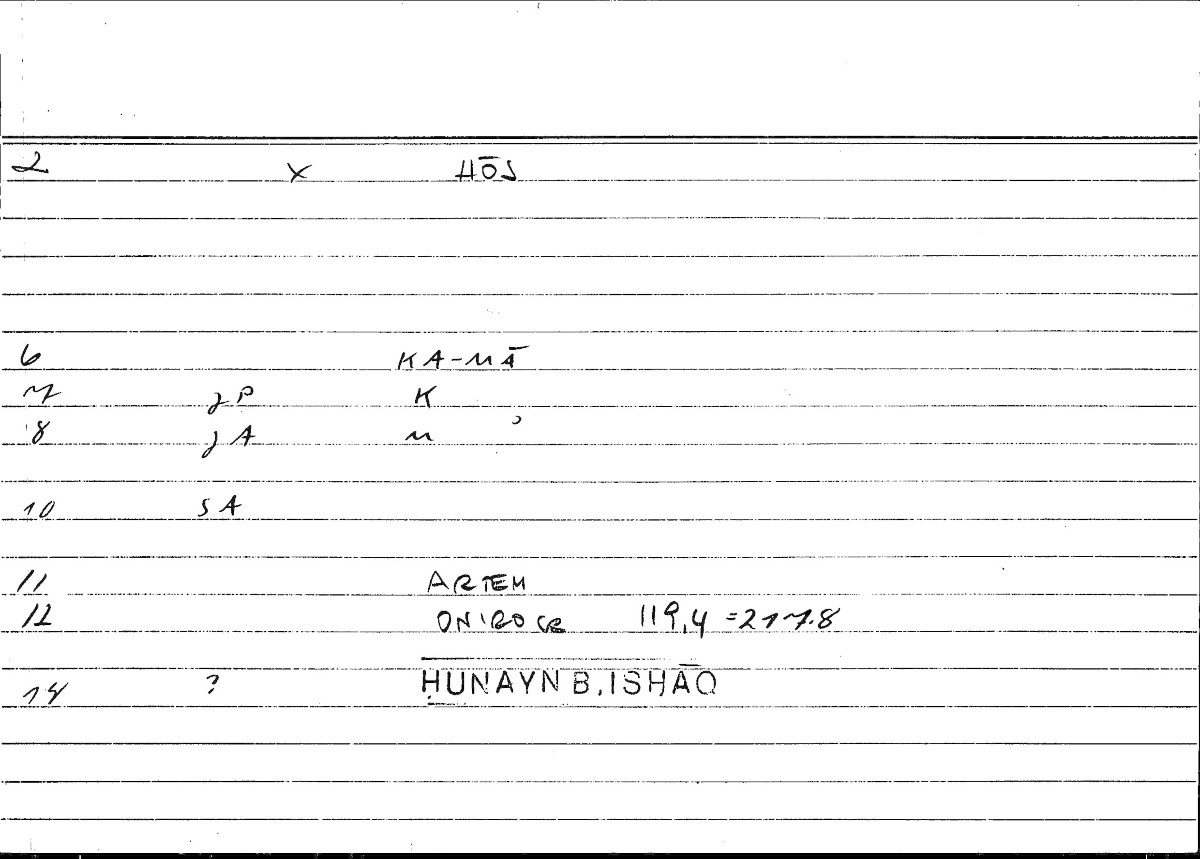 2 X HŌS
6 KA-MĀ
7 jP K
8 jA M
10 SA
11 ARTEM
12 ONIROCR 119,4 =217.8
14 ? ḤUNAYN B. ISḤĀQ